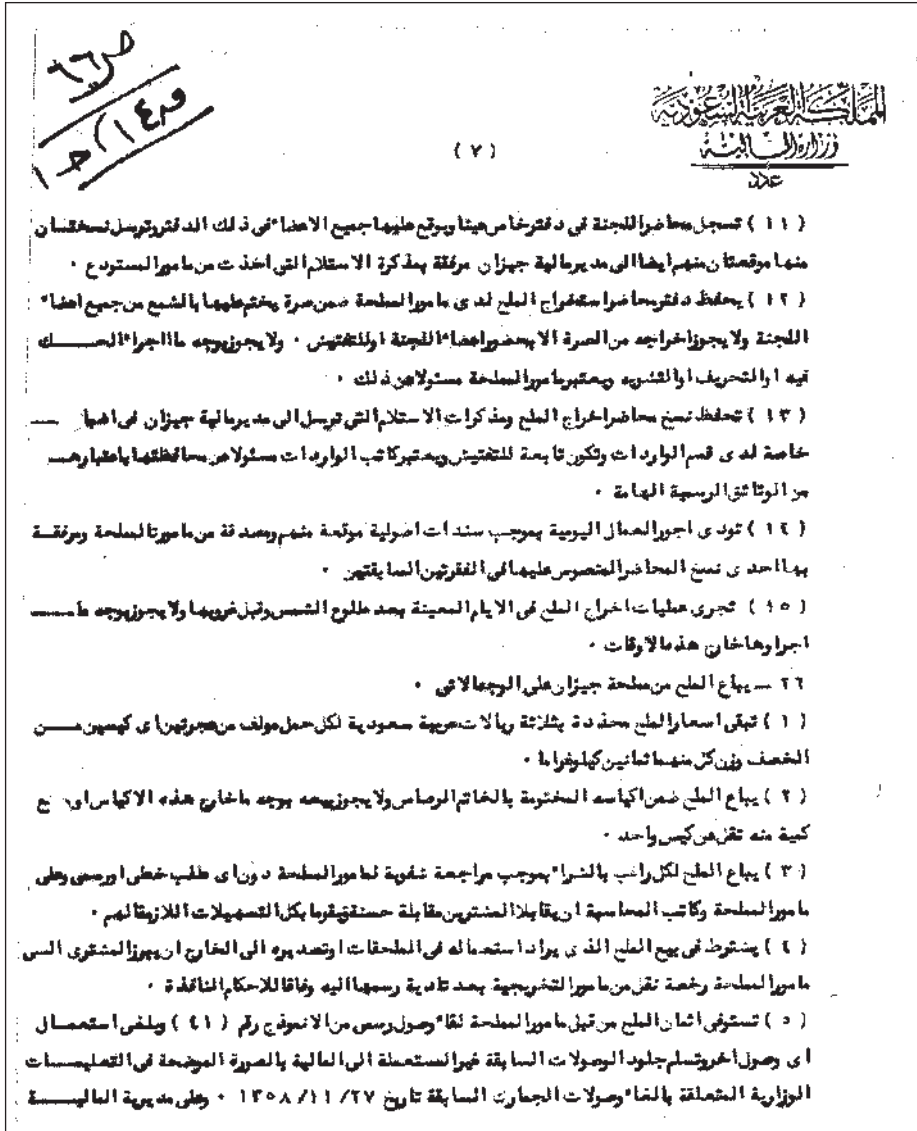 ص ٦٦
ق ١٤) حـ ١
المملكة العربية السعودية
وزارة المالية
عدد
( ٧ )
( ١١ ) تسجل محاضر اللجنة في دفتر خاص هيئا ويوقع عليها جميع الاعضاء في ذلك الدفتر وترسل نسختان
منها موقعتان منهم ايضا الى مدير مالية جيزان مرفقة بمذكرة الاستلام التي اخذت من مامور المستودع ٠
( ١٢ ) يحفظ دفتر محاضر استخراج الملح لدى مامور المملحة ضمن صرة يختم عليها بالشمع من جميع اعضاء
اللجنة ولا يجوز اخراجه من الصرة الا بحضور اعضاء اللجنة او للتفتيش ٠ ولا يجوز بوجه ما اجراء الحـــــك
فيه او التحريف او التشويه ويعتبر مامور المملحة مسئولا عن ذلك ٠
( ١٣ ) تحفظ نسخ محاضر اخراج الملح ومذكرات الاستلام التي ترسل الى مدير مالية جيزان في
خاصة لدى قسم الواردات وتكون تابعة للتفتيش ويعتبر كاتب الواردات مسئولا عن محافظتها باعتبارهـــ
من الوثائق الرسمية الهامة ٠
( ١٤ ) تودى اجور العمال اليومية بموجب سندات اصولية موقعة منهم ومصدقة من مامور المملحة ومرفقـــة
بها احدى نسخ المحاضر المنصوص عليها في الفقرتين السابقتين ٠
( ١٥ ) تجرى عمليات اخراج الملح في الايام المعينة بعد طلوع الشمس وقبل غروبها ولا يجوز بوجه مــــ
اجراوها خارج هذه الاوقات ٠
٢٦ ــ يباع الملح من مملحة جيزان على الوجه الاتي ٠
( ١ ) تبقى اسعار الملح محددة بثلاثة ريالات عربية سعودية لكل حمل مولف من هجرتين اى كيسين مـــن
الخصف وزن كل منهما ثمانين كيلوغراما ٠
( ٢ ) يباع الملح ضمن اكياسه المختومة بالخاتم الرصاص ولا يجوز بيعه بوجه ما خارج هذه الاكياس او
كمية منه تقل عن كيس واحد ٠
( ٣ ) يباع الملح لكل راغب بالشراء بموجب مراجعة شفوية لمامور المملحة دون اى طلب خطى او رسمى وعلى
مامور المملحة وكاتب المحاسبة ان يقابلا المشترين مقابلة حسنة ويقوما بكل التسهيلات اللازمة لهم ٠
( ٤ ) يشترط في بيع الملح الذى يراد استعماله في الملحقات او تصديره الى الخارج ان يبرز المشترى الى
مامور المملحة رخصة نقل من مامور التخريجية بعد تادية رسمها اليه وفاقا للاحكام النافذة ٠
( ٥ ) تستوفى اثمان الملح من قبل مامور المملحة لقاء وصول رسمى من الانموذج رقم ( ٤١ ) ويلغى استعمـــال
اى وصول اخر وتسلم جلود الوصولات السابقة غير المستعملة الى المالية بالصورة الموضحة في التعليمـــات
الوزارية المتعلقة بالغاء وصولات الجمارك السابقة تاريخ ٢٧/ ١١/ ١٣٥٨ ٠ وعلى مديرية الماليـــة